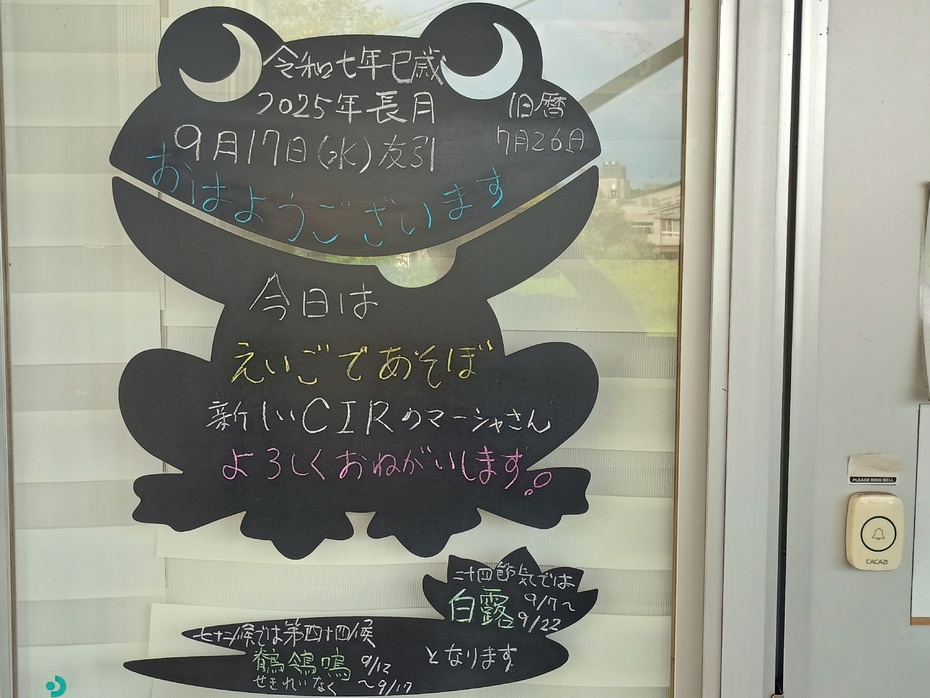 令和七年巳歳
2025年長月
旧暦
7月26日
9月17日(水)友引
おはようございます
今日は
えいごであそぼ
新しいCIRのマーシャさん
よろしくおねがいします。
二十四節気では
白露 9/7～
9/22
七十二候では第四十四候
鶺鴒鳴 9/12
せきれいなく ～9/17
となります
PLEASE RING BELL
CACAZI